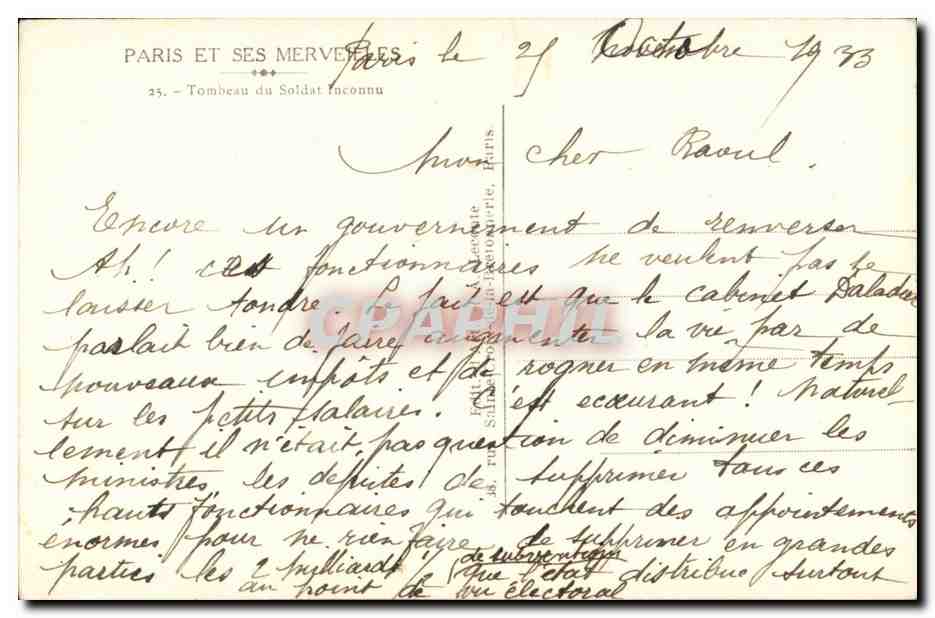 PARIS ET SES MERVEILLES
25. - Tombeau du Soldat Inconnu
Paris le 25 Octobre 1933
Mon cher Raoul.
Encore un gouvernement de renverser
Ah! ces fonctionnaires ne veulent pas se
laisser tondre. Le fait est que le cabinet Daladier
parlait bien de faire augmenter la vie par de
nouveaux impôts et de rogner en même temps
sur les petits salaires. C'est ecœurant! Naturel-
lement il n'était pas question de diminuer les
ministres, les deputes de supprimer tous ces
hauts fonctionnaires qui touchent des appointements
enormes pour ne rien faire de supprimer en grandes
parties les 2 milliards de subvention
que l'état distribue surtout
au point de vu électoral
Edit. A. Leconte
38, rue Sainte-Croix-de-la-Bretonnerie, Paris.
CPAPHIL